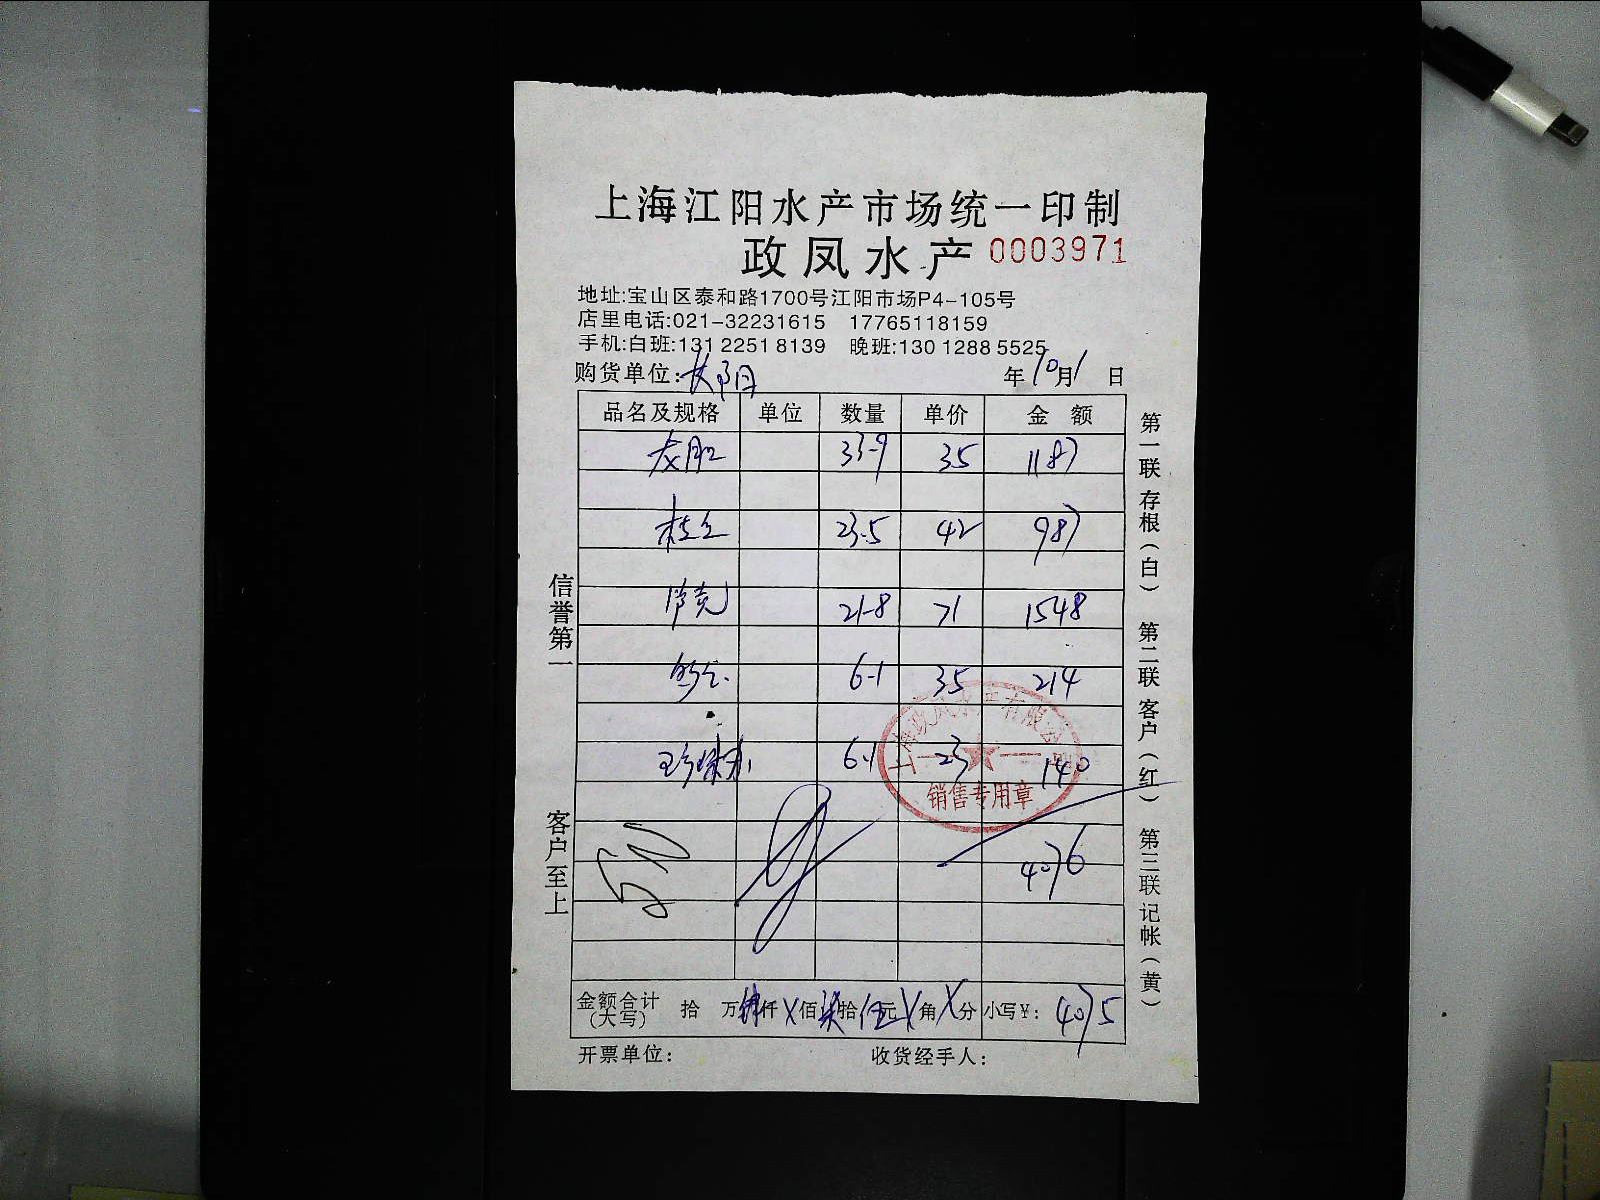 上海江阳水产市场统一印制
政凤水产 0003971
地址:宝山区泰和路1700号江阳市场P4-105号
店里电话:021-32231615 17765118159
手机:白班:131 2251 8139 晚班:130 1288 5525
购货单位: 年10月1日
品名及规格 单位 数量 单价 金额
33-9 35 1187
23.5 42 987
21-8 71 1548
6-1 35 214
6.1 23 140
4076
上海政凤水产有限公司
销售专用章
金额合计(大写) 拾 万肆仟X佰柒拾伍元X角X分 小写¥: 4075
开票单位: 收货经手人:
信誉第一
客户至上
第一联存根(白) 第二联客户(红) 第三联记帐(黄)